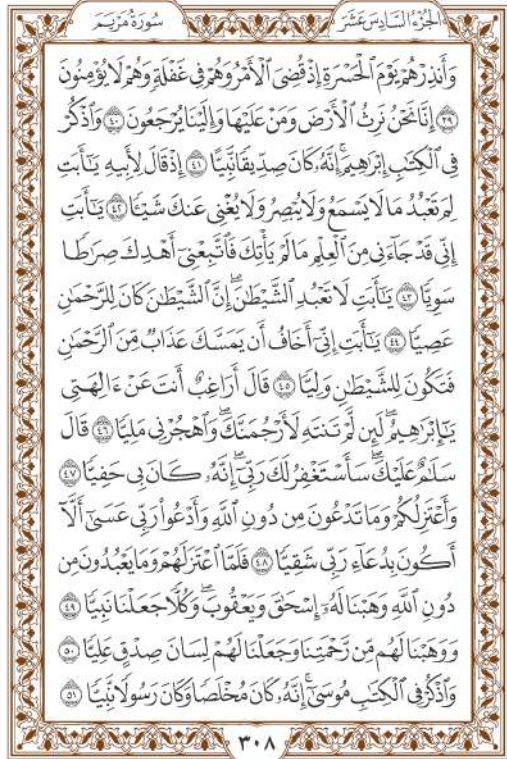 سُورَةُ مَرْيَمَ الجُزْءُ السَّادِسَ عَشَرَ
وَأَنذِرْهُمْ يَوْمَ ٱلْحَسْرَةِ إِذْ قُضِىَ ٱلْأَمْرُ وَهُمْ فِى غَفْلَةٍ وَهُمْ لَا يُؤْمِنُونَ
٣٩ إِنَّا نَحْنُ نَرِثُ ٱلْأَرْضَ وَمَنْ عَلَيْهَا وَإِلَيْنَا يُرْجَعُونَ ٤٠ وَٱذْكُرْ
فِى ٱلْكِتَٰبِ إِبْرَٰهِيمَ ۚ إِنَّهُۥ كَانَ صِدِّيقًا نَّبِيًّا ٤١ إِذْ قَالَ لِأَبِيهِ يَٰٓأَبَتِ
لِمَ تَعْبُدُ مَا لَا يَسْمَعُ وَلَا يُبْصِرُ وَلَا يُغْنِى عَنكَ شَيْـًٔا ٤٢ يَٰٓأَبَتِ
إِنِّى قَدْ جَآءَنِى مِنَ ٱلْعِلْمِ مَا لَمْ يَأْتِكَ فَٱتَّبِعْنِىٓ أَهْدِكَ صِرَٰطًا
سَوِيًّا ٤٣ يَٰٓأَبَتِ لَا تَعْبُدِ ٱلشَّيْطَٰنَ ۖ إِنَّ ٱلشَّيْطَٰنَ كَانَ لِلرَّحْمَٰنِ
عَصِيًّا ٤٤ يَٰٓأَبَتِ إِنِّىٓ أَخَافُ أَن يَمَسَّكَ عَذَابٌ مِّنَ ٱلرَّحْمَٰنِ
فَتَكُونَ لِلشَّيْطَٰنِ وَلِيًّا ٤٥ قَالَ أَرَاغِبٌ أَنتَ عَنْ ءَالِهَتِى
يَٰٓإِبْرَٰهِيمُ ۖ لَئِن لَّمْ تَنتَهِ لَأَرْجُمَنَّكَ ۖ وَٱهْجُرْنِى مَلِيًّا ٤٦ قَالَ
سَلَٰمٌ عَلَيْكَ ۖ سَأَسْتَغْفِرُ لَكَ رَبِّىٓ ۖ إِنَّهُۥ كَانَ بِى حَفِيًّا ٤٧
وَأَعْتَزِلُكُمْ وَمَا تَدْعُونَ مِن دُونِ ٱللَّهِ وَأَدْعُوا۟ رَبِّى عَسَىٰٓ أَلَّآ
أَكُونَ بِدُعَآءِ رَبِّى شَقِيًّا ٤٨ فَلَمَّا ٱعْتَزَلَهُمْ وَمَا يَعْبُدُونَ مِن
دُونِ ٱللَّهِ وَهَبْنَا لَهُۥٓ إِسْحَٰقَ وَيَعْقُوبَ ۖ وَكُلًّا جَعَلْنَا نَبِيًّا ٤٩
وَوَهَبْنَا لَهُم مِّن رَّحْمَتِنَا وَجَعَلْنَا لَهُمْ لِسَانَ صِدْقٍ عَلِيًّا ٥٠
وَٱذْكُرْ فِى ٱلْكِتَٰبِ مُوسَىٰٓ ۚ إِنَّهُۥ كَانَ مُخْلَصًا وَكَانَ رَسُولًا نَّبِيًّا ٥١
٣٠٨